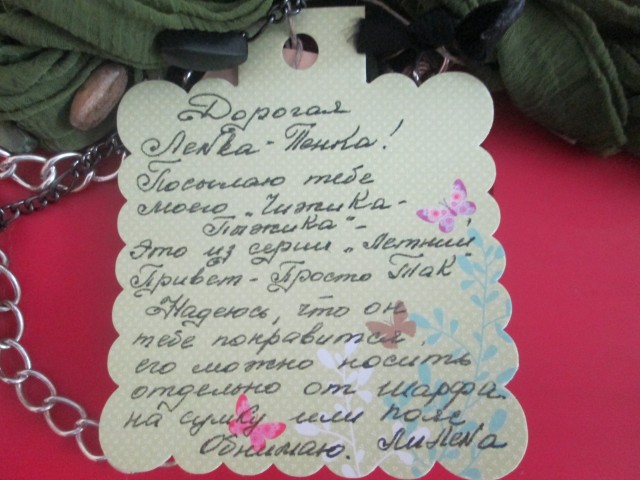 Дорогая
ЛеNка-Пенка!
Посылаю тебе
моего "Чижика-
Пыжика"-
Это из серии "Летний
Привет-Просто Так"
Надеюсь, что он
тебе понравится,
его можно носить
отдельно от шарфа
на сумку или пояс
Обнимаю. ЛиЛеNа